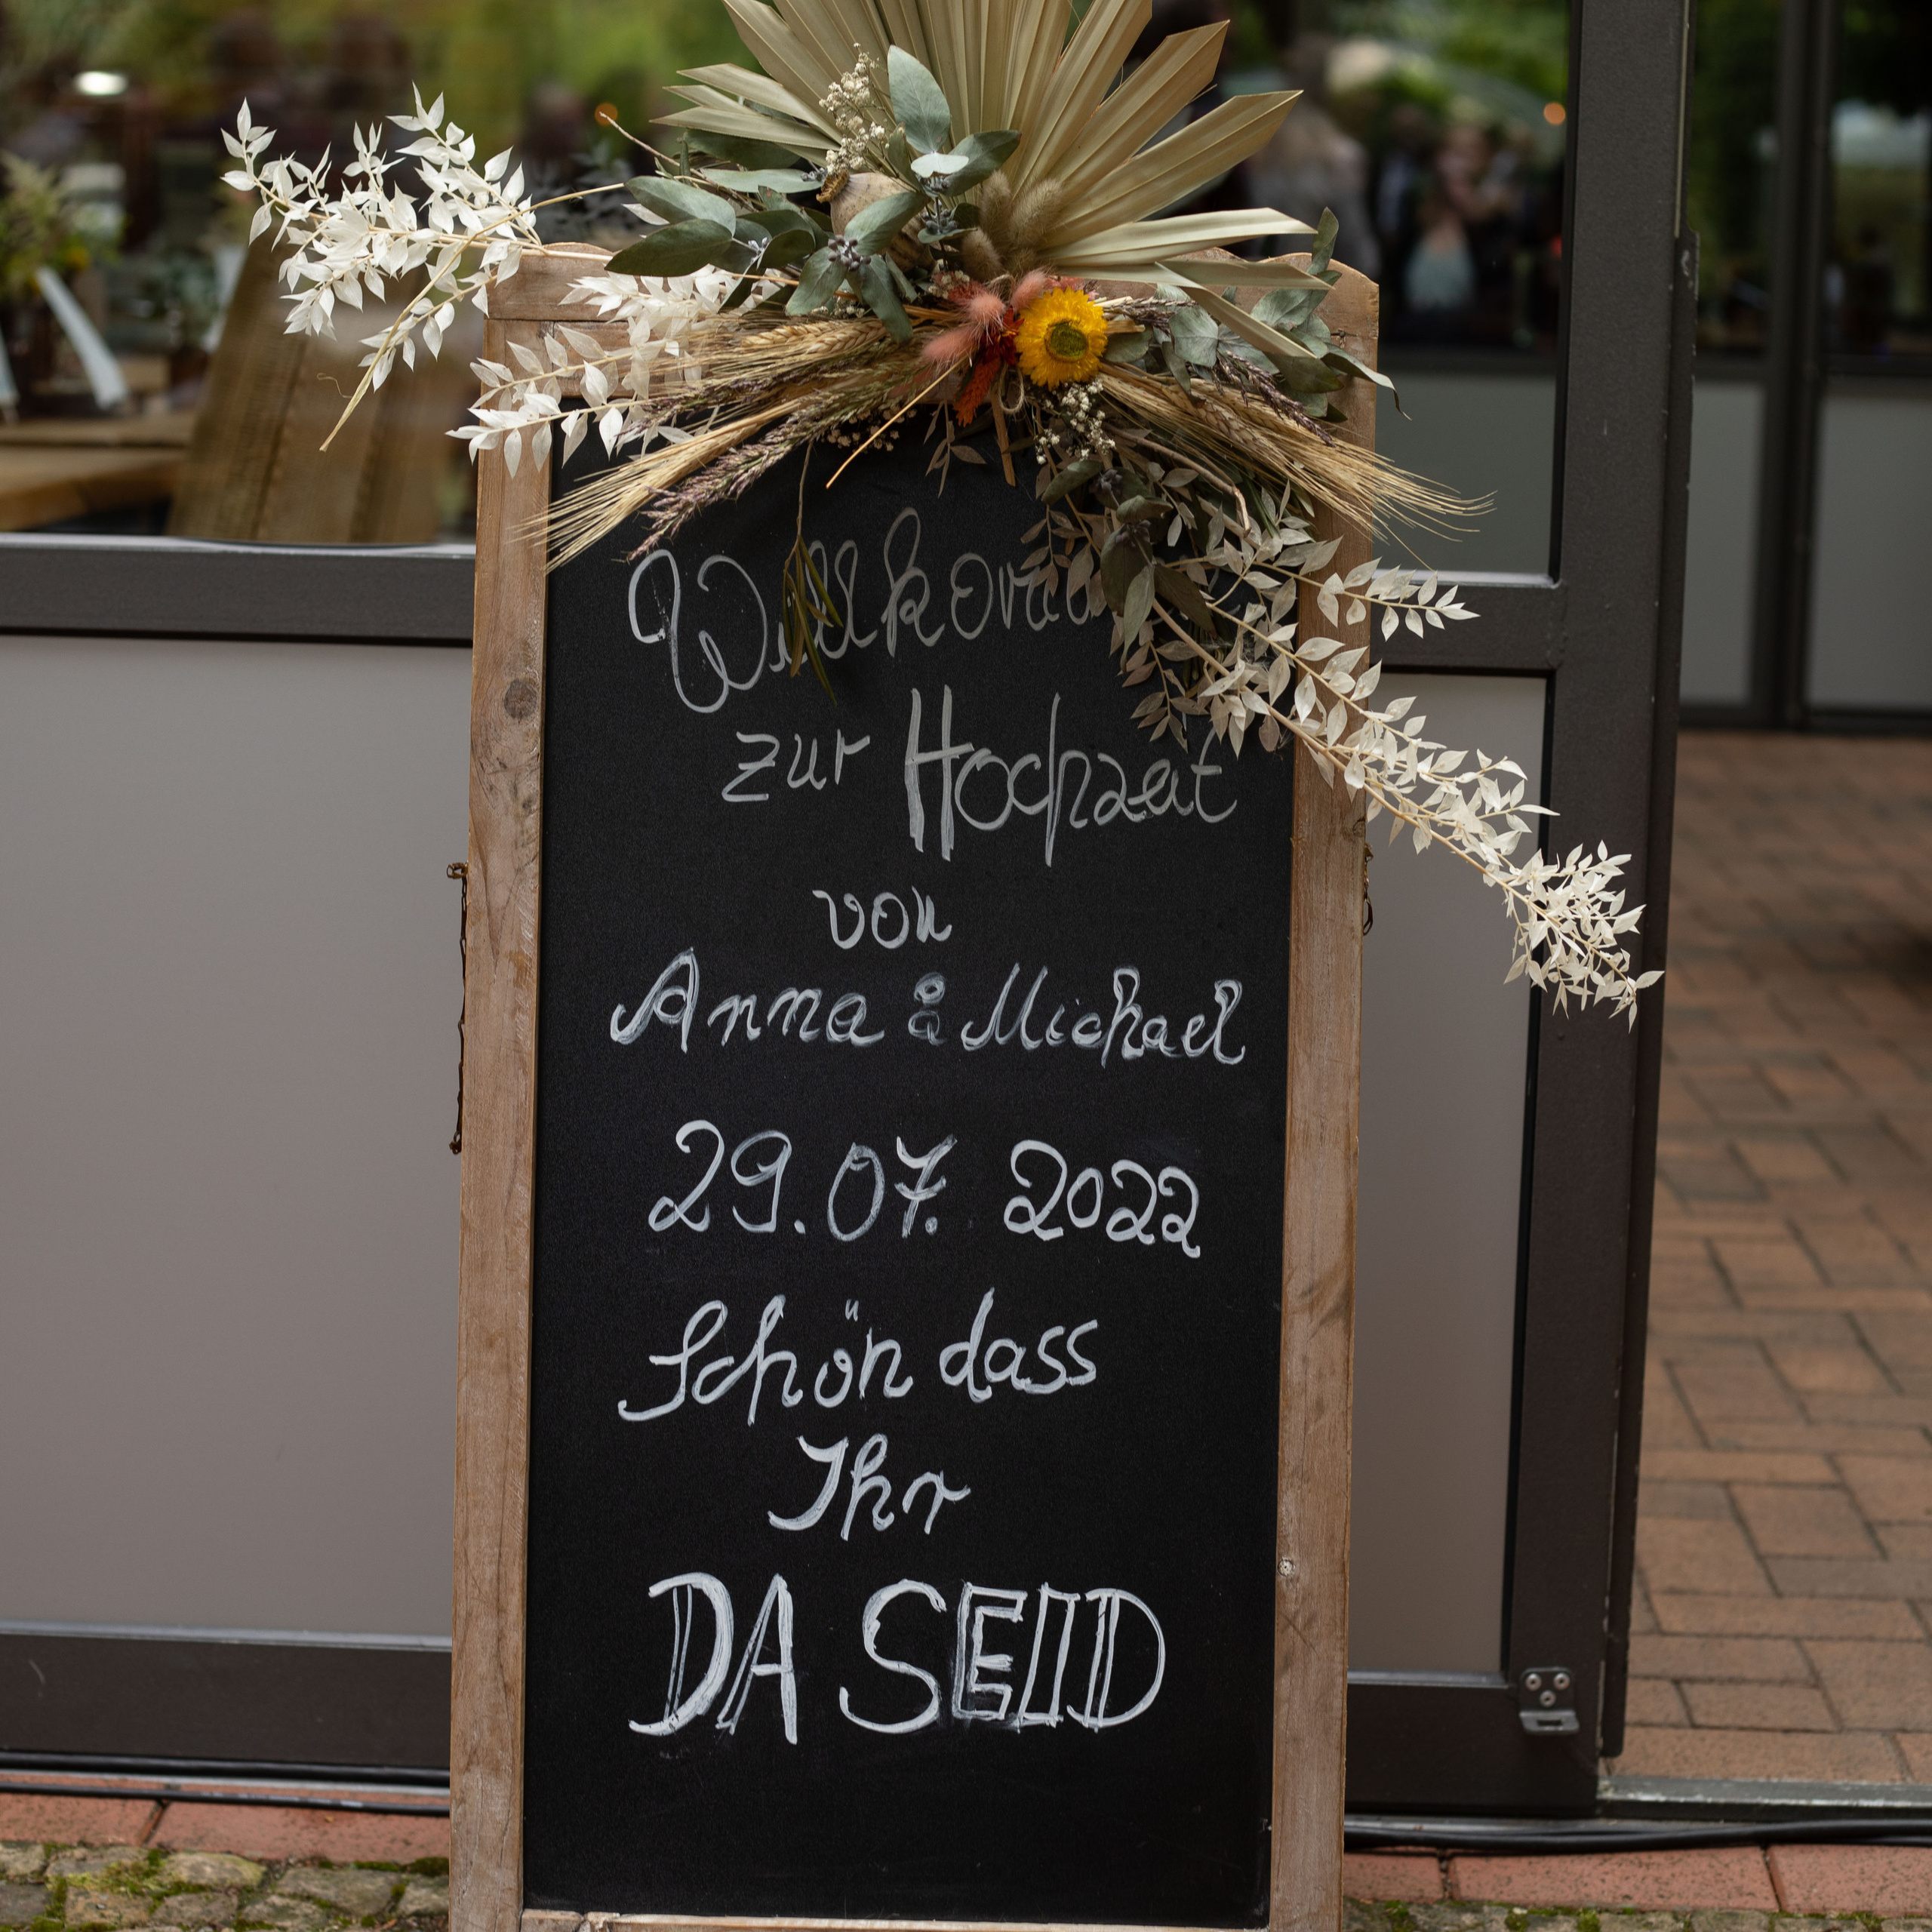 Willkomm
zur Hochzeit
von
Anna & Michael
29.07. 2022
Schön dass
Ihr
DA SEID